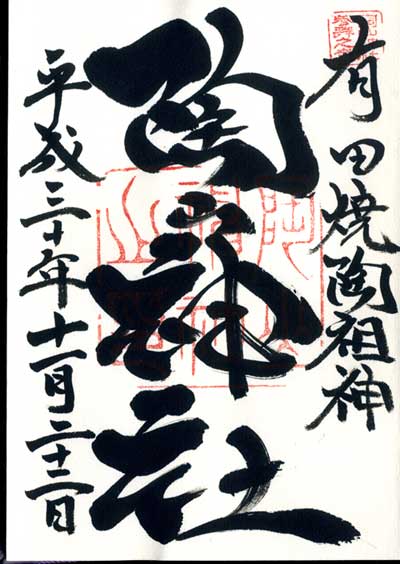 有田焼陶祖神
陶山神社
平成三十年十一月二十二日